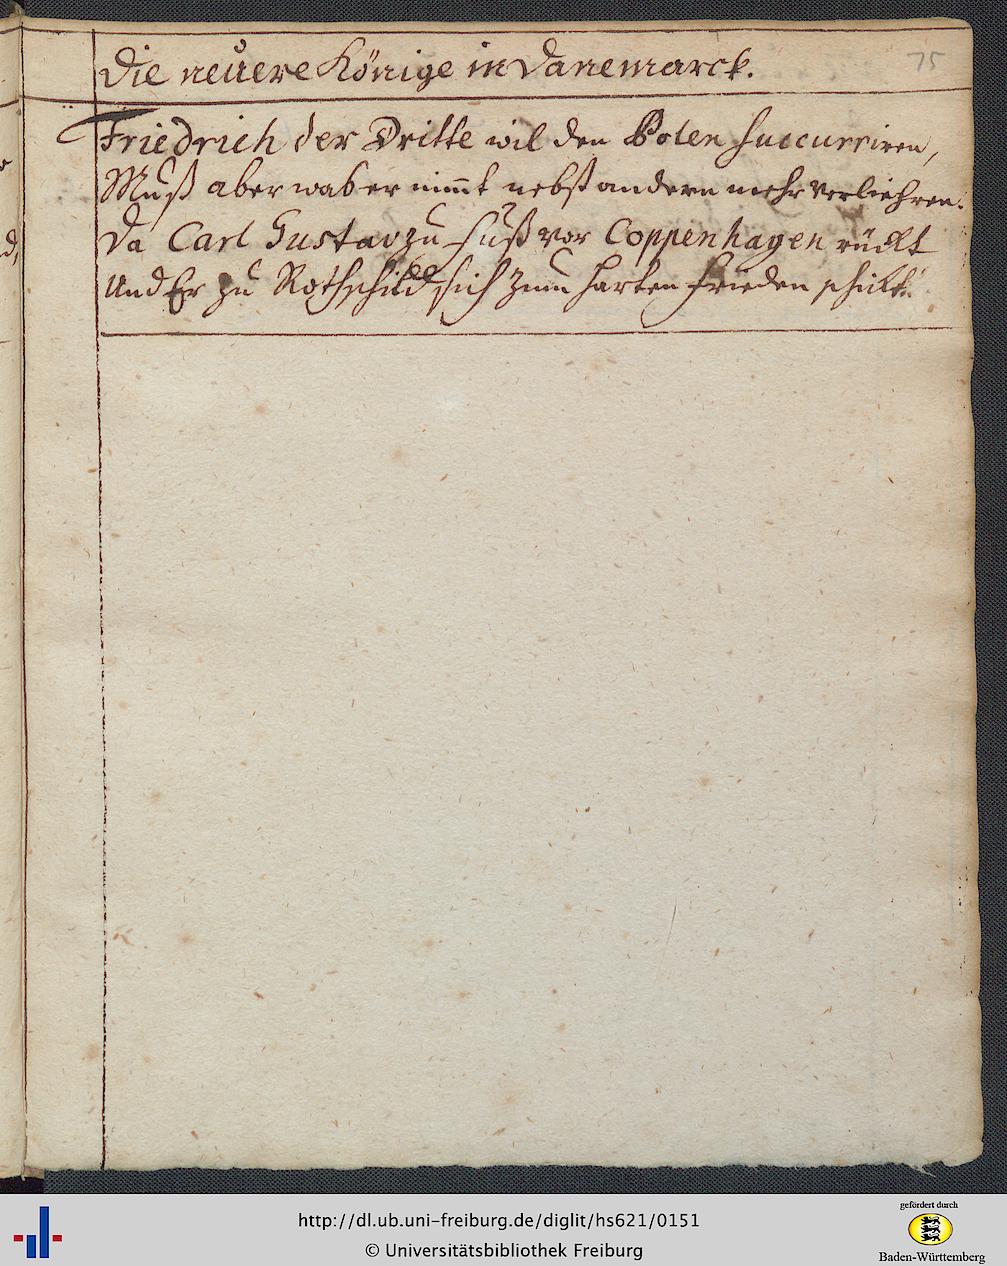 Die neuere Könige in Danemarck.
75
Friedrich der Dritte wil den Polen succurriren,
Muß aber was er nim̅t nebst andern mehr verliehren.
Da Carl Gustav zu Fuß vor Coppenhagen rückt
Und Er zu Rothschild sich zum harten Frieden schickt.
http://dl.ub.uni-freiburg.de/diglit/hs621/0151
© Universitätsbibliothek Freiburg
gefördert durch
Baden-Württemberg